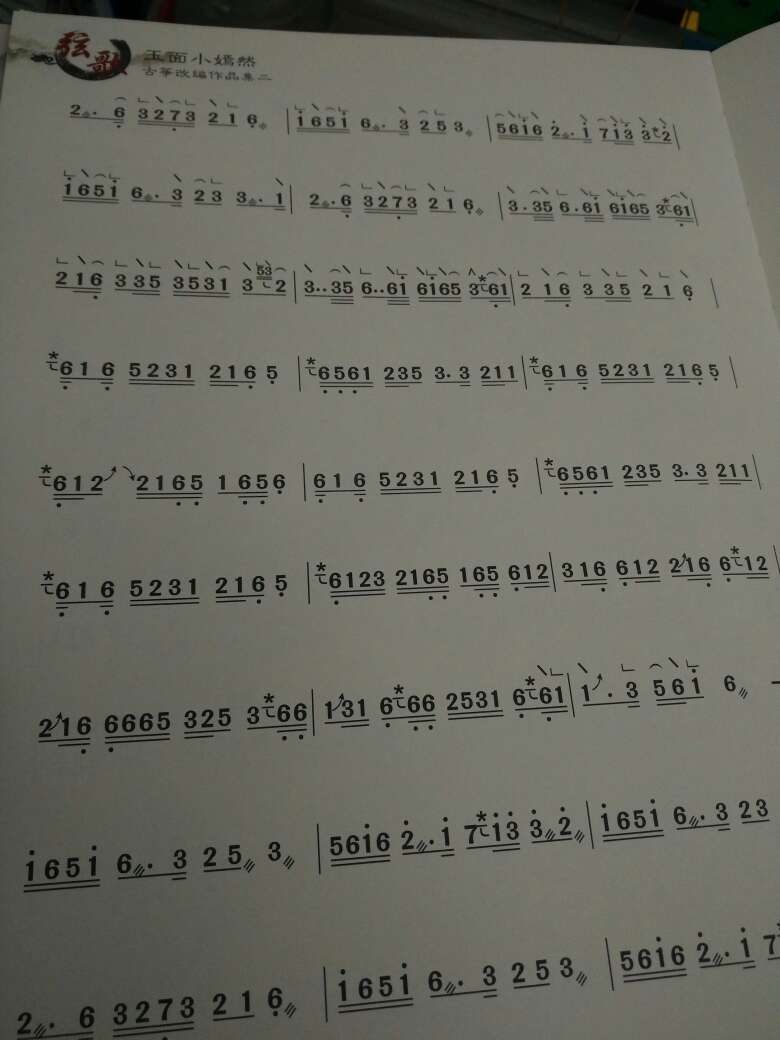 弦歌
玉面小嫣然
古筝改编作品集二
2. 6 3273 21 6 | 1651 6. 3 25 3 | 5616 2. 1 713 32 |
1651 6. 3 23 3. 1 | 2. 6 3273 21 6 | 3.35 6.61 6165 361 |
216 335 3531 3 53 2 | 3..35 6..61 6165 361 | 2 16 3 35 21 6 |
616 5231 216 5 | 6561 235 3.3 211 | 616 5231 216 5 |
612 2165 1656 | 616 5231 216 5 | 6561 235 3.3 211 |
616 5231 216 5 | 6123 2165 165 612 | 316 612 216 612 |
216 6665 325 366 | 131 666 2531 661 | 1. 3 561 6 –
1651 6. 3 25 3 | 5616 2. 1 713 32 | 1651 6. 3 23
2. 6 3273 21 6 | 1651 6. 3 25 3 | 5616 2. 1 7